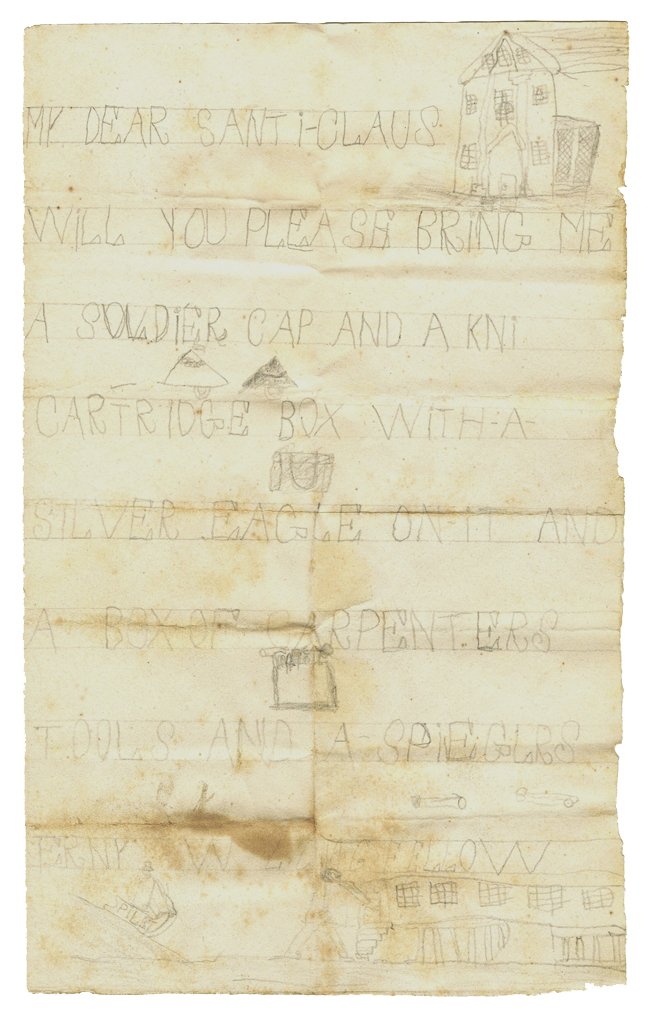 MY DEAR SANTi-CLAUS
WiLL YOU PLEASE BRiNG ME
A SOLDiER CAP AND A KNi
CARTRIDGE BOX WiTH-A-
SiLVER EAGLE ON-IT AND
A BOX OF CARPENT.ERS
TOOLS AND A-SPiEGLRS
ERNY FELLOW